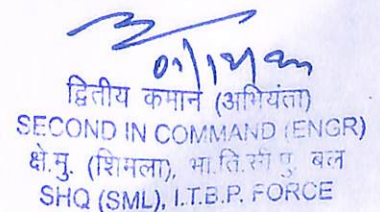 द्वितीय कमान (अभियंता)
SECOND IN COMMAND (ENGR)
क्षे.मु. (शिमला), भा.ति.सी.पु. बल
SHQ (SML), I.T.B.P. FORCE